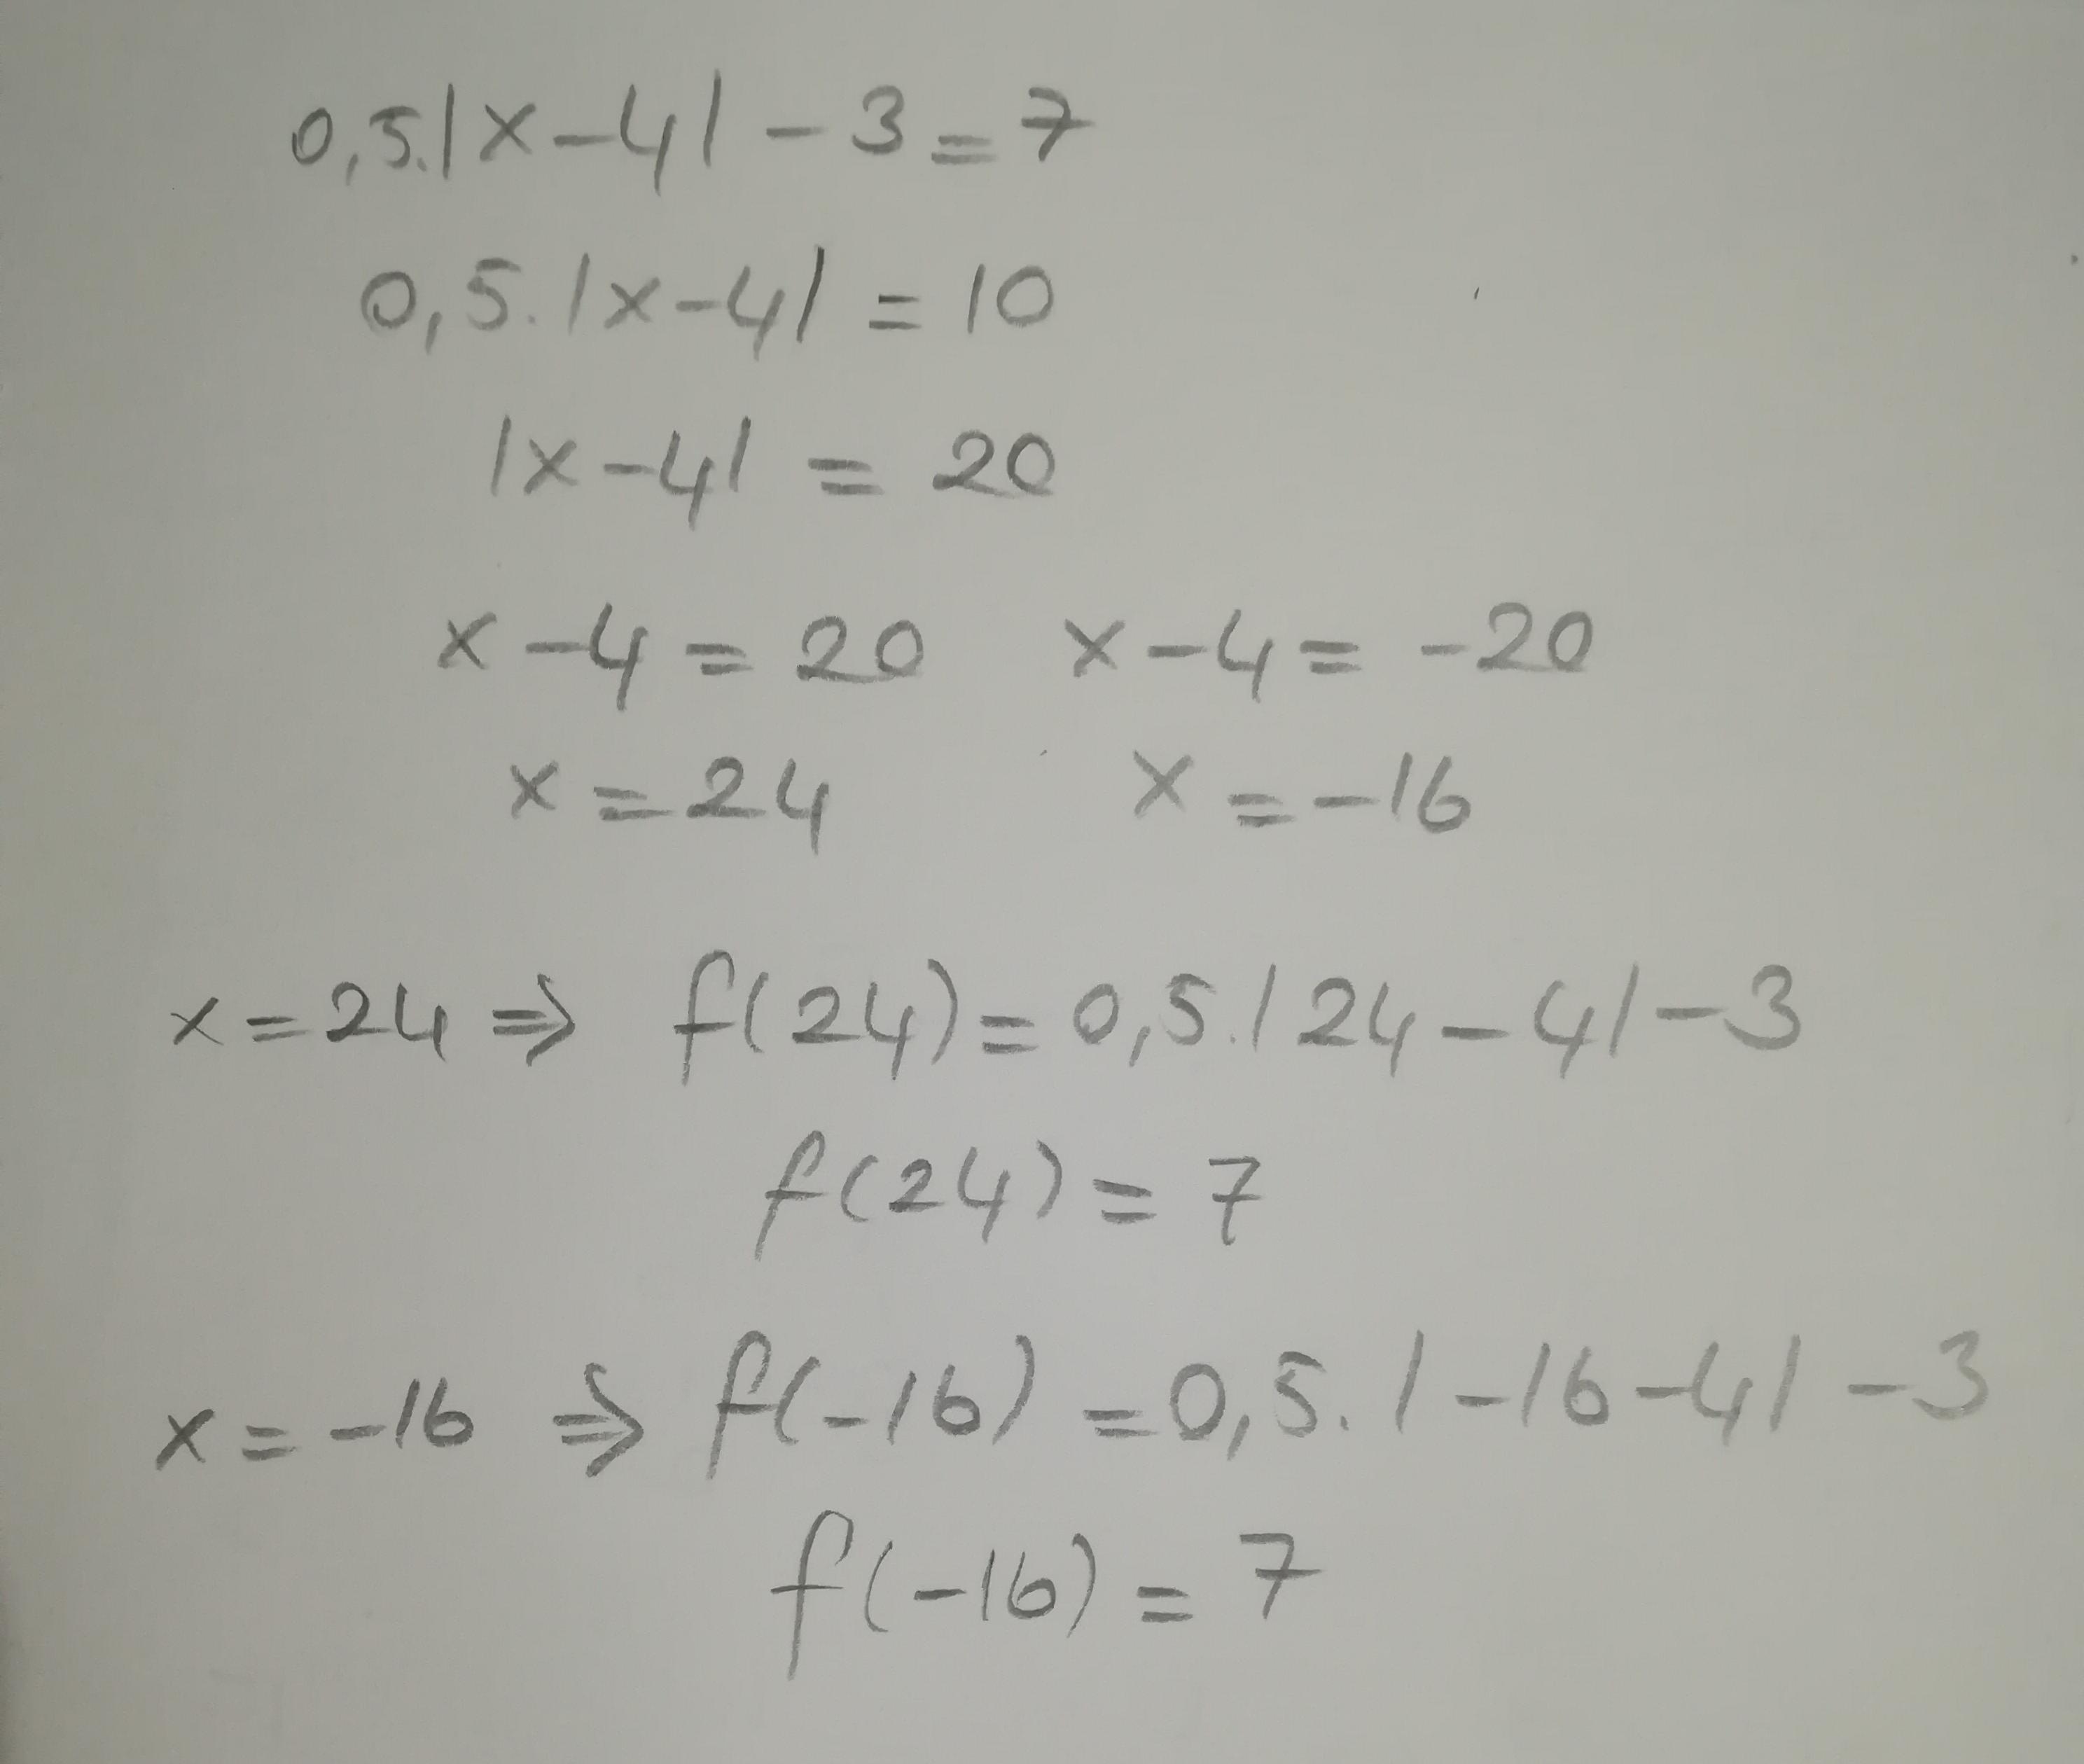 0,5.|x-4|-3=7
0,5.|x-4|=10
|x-4|=20
x-4=20 x-4=-20
x=24 x=-16
x=24⇒ f(24)=0,5.|24-4|-3
f(24)=7
x=-16 ⇒ f(-16)=0,5.|-16-4|-3
f(-16)=7